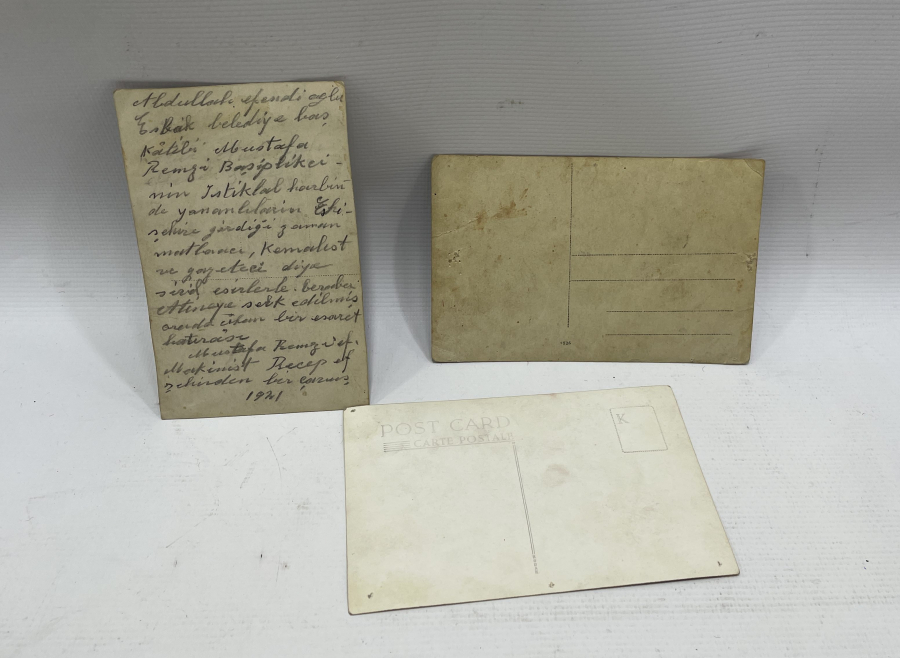 Abdullah efendi oglu
Esbak belediye baş
Kâtibi Mustafa
Remzi Basiplikci-
nin Istiklal harbin
de yunanlıların Eski-
şehire girdiği zaman
matbaacı, Kemalist
ve gazeteci diye
esirlerle beraber
Atineye sevk edilmiş
orada iken bir esaret
hatırası
Mustafa Remzi ef.
Makinist Recep ef
şehirden bir çavuş
1921
POST CARD
CARTE POSTALE
K